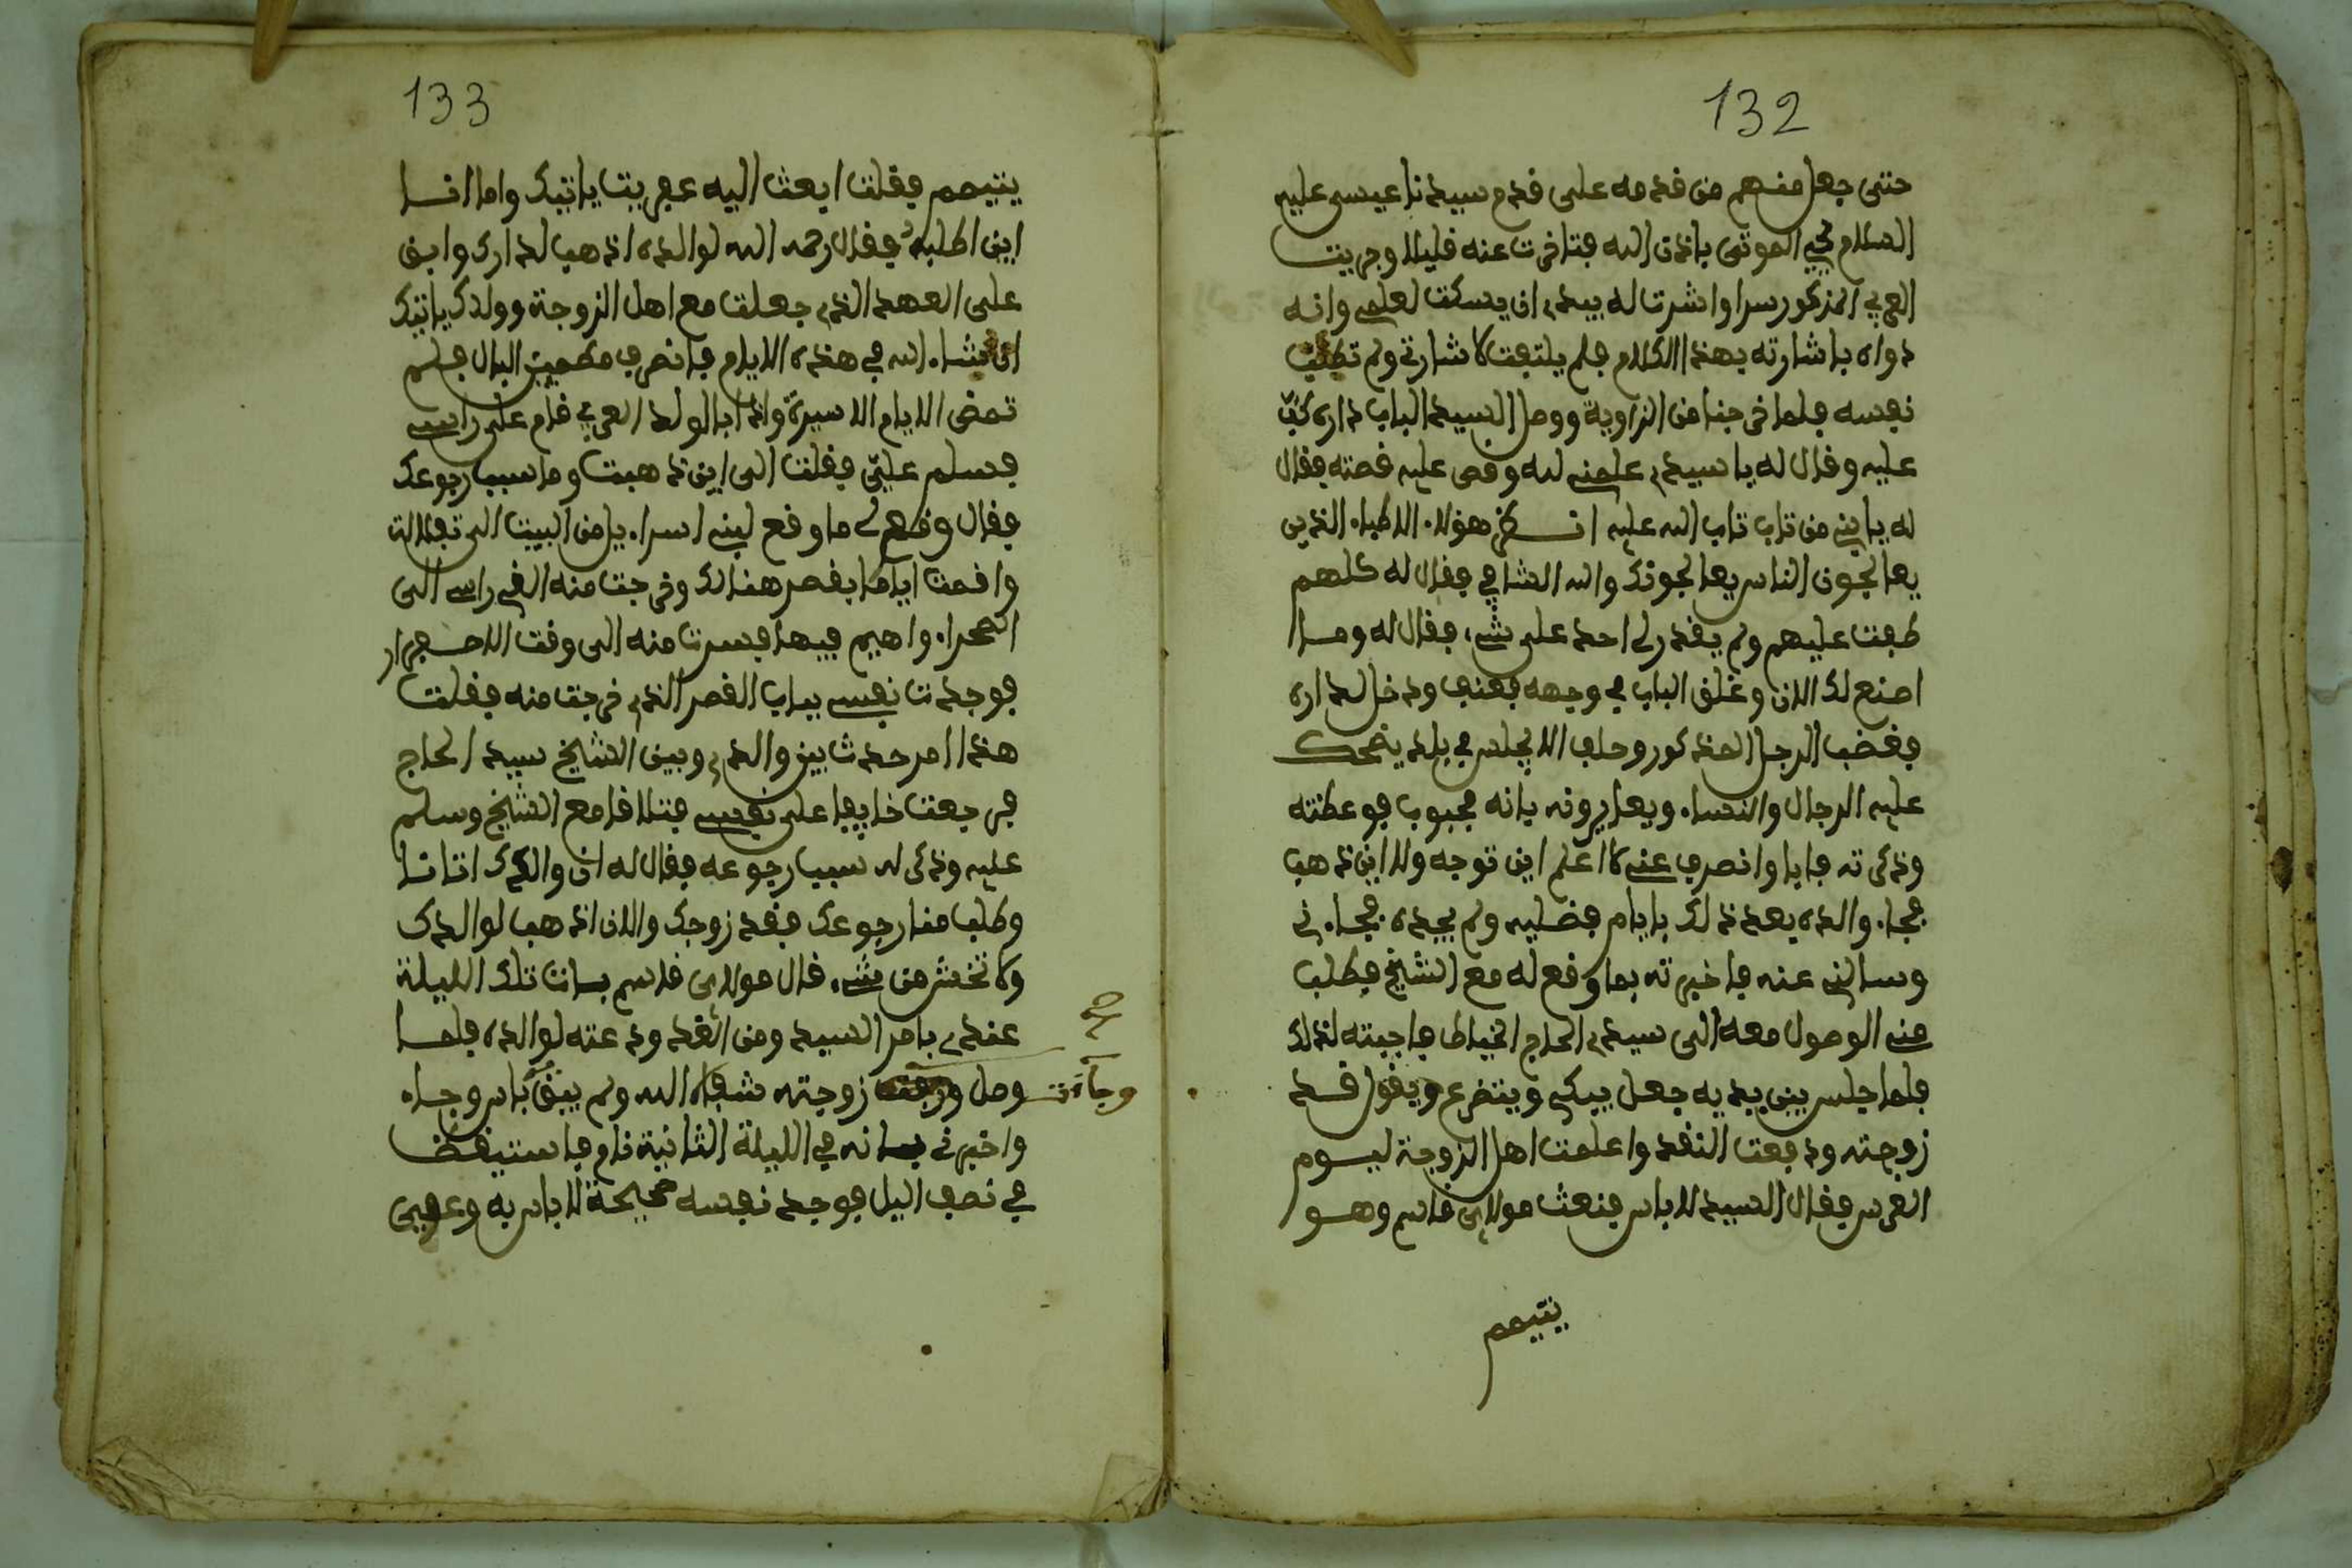 132
حتى جعل منهم من قدمه على قدم سيدنا عيسى عليه
السلام يحيي الموتى باذن الله فتاخرت عنه قليلا وجريت
العربي المذكور سرا واشرت له بيدي ان يسكت لعلمي وانه
دواه باشارته بهذا الكلام فلم يلتفت لاشارتي ولم تطب
نفسه فلما خرجنا من الزاوية ووصل السيد لباب داره كب
عليه وقال له يا سيدي علمني لله وقص عليه قصته فقال
له يا بني من تاب تاب الله عليه انظر هؤلاء الاطباء الذين
يعالجون الناس يعالجونك والله الشافي فقال له كلهم
طبت عليهم ولم يقدر لي احد على شيء فقال له وما
اصنع لك الان وغلق الباب في وجهه بعنف ودخل لداره
فغضب الرجل المذكور وحلف الا يجلس في بلد يضحك
عليه الرجال والنساء ويعايرونه بانه مجبوب فوعظته
وذكرته فابا وانصرف عني لا اعلم اين توجه ولا اين ذهب
فجاء والده بعد ذلك بايام فطلبه ولم يجده فجاءني
وسالني عنه فاخبرته بما وقع له مع الشيخ فطلب
مني الوصول معه الى سيدي الحاج الخياط فاجبته لذلك
فلما جلس بين يديه جعل يبكي ويتضرع ويقول قد
زوجته ودفعت النقد واعلمت اهل الزوجة ليوم
العرس فقال السيد لا باس فنعث مولاي قاسم وهو
يتيمم
133
يتيمم فقلت ابعث اليه عفريتا ياتيك واما انا
اين اطلبه فقال رحمه الله لوالده اذهب لدارك وابق
على العهد الذي جعلت مع اهل الزوجة وولدك ياتيك
ان شاء الله في هذه الايام فانصرف مطمين البال فلم
تمض الايام الا سيرة واذا بالولد العربي قام على راسي
فسلم علي فقلت الى اين ذهبت وما سبب رجوعك
فقال وقع لي ما وقع لبني اسراءيل من البيت الى تفلالة
واقمت اياما بقصر هنالك وخرجت منه الفي راسي الى
الصحراء واهيم فيها فسرت منه الى وقت الاصفرار
فوجدت نفسي بباب القصر الذي خرجت منه فقلت
هذا امر حدث بين والدي وبين الشيخ سيد الحاج
فرجعت خايفا على نفسي فتلاقا مع الشيخ وسلم
عليه وذكر له سبب رجوعه فقال له ان والدك اتانا
وطلب منا رجوعك فقد زوجك والان اذهب لوالدك
ولا تخش من شيء قال مولاي قاسم بات تلك الليلة
عندي بامر السيد ومن الغد ودعته لوالده فلما
وصل وجاءت زوجته شفاه الله ولم يبق باس وجاء
واخبرني بانه في الليلة الثانية نام فاستيقظ
في نصف اليل فوجد نفسه صحيحة لا باس به وعوفي